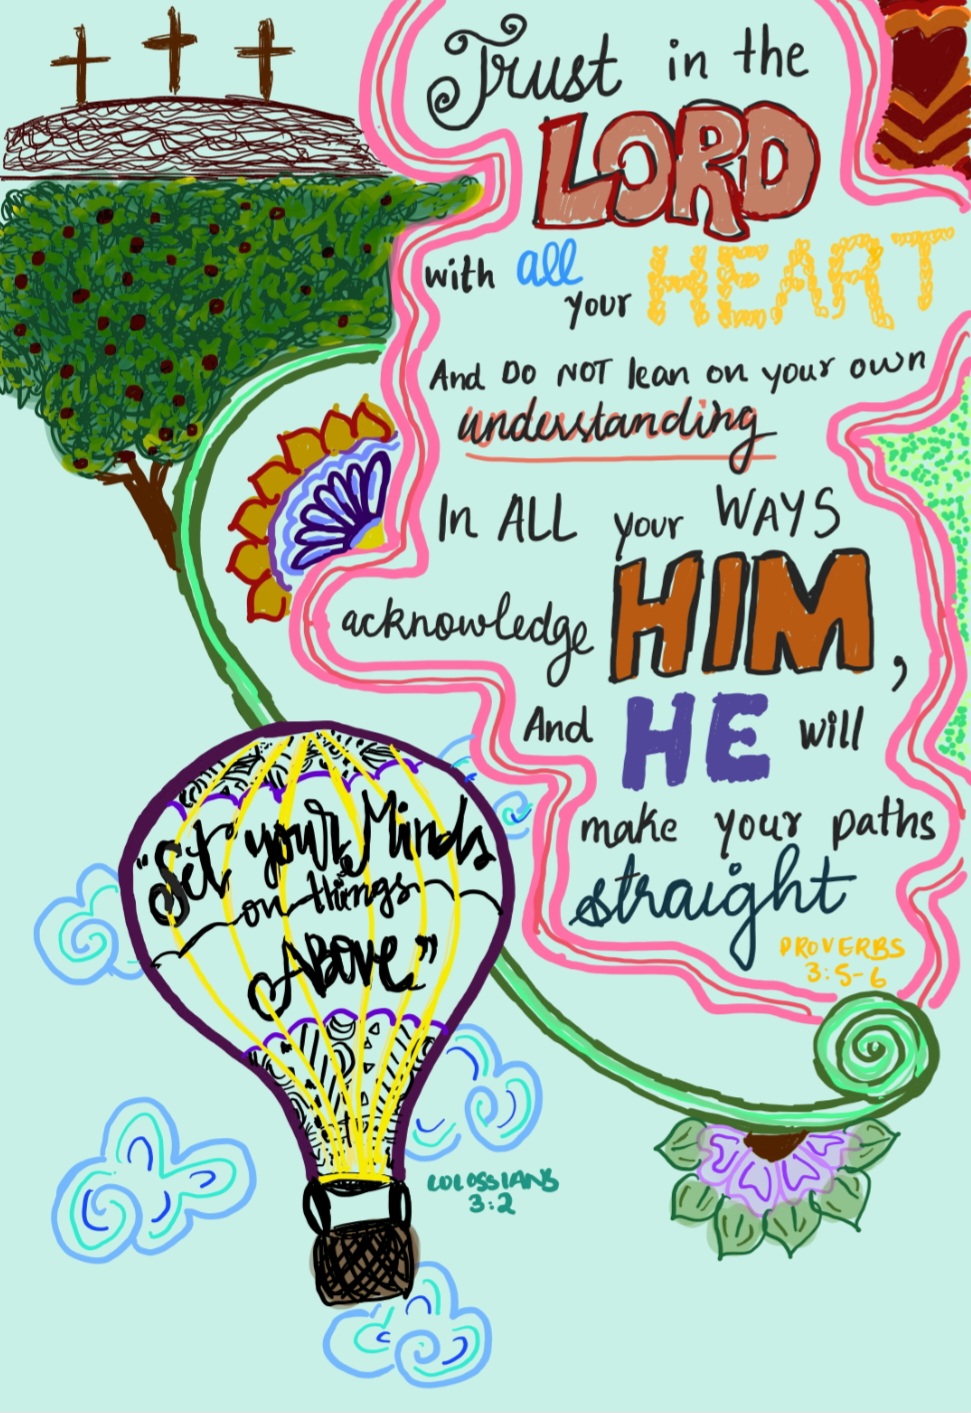 Trust in the
LORD
with all
your HEART
And DO NOT lean on your own
understanding
In ALL your WAYS
acknowledge HIM,
And HE will
make your paths
straight
PROVERBS
3:5-6
"Set your Minds
on things
Above"
COLOSSIANS
3:2